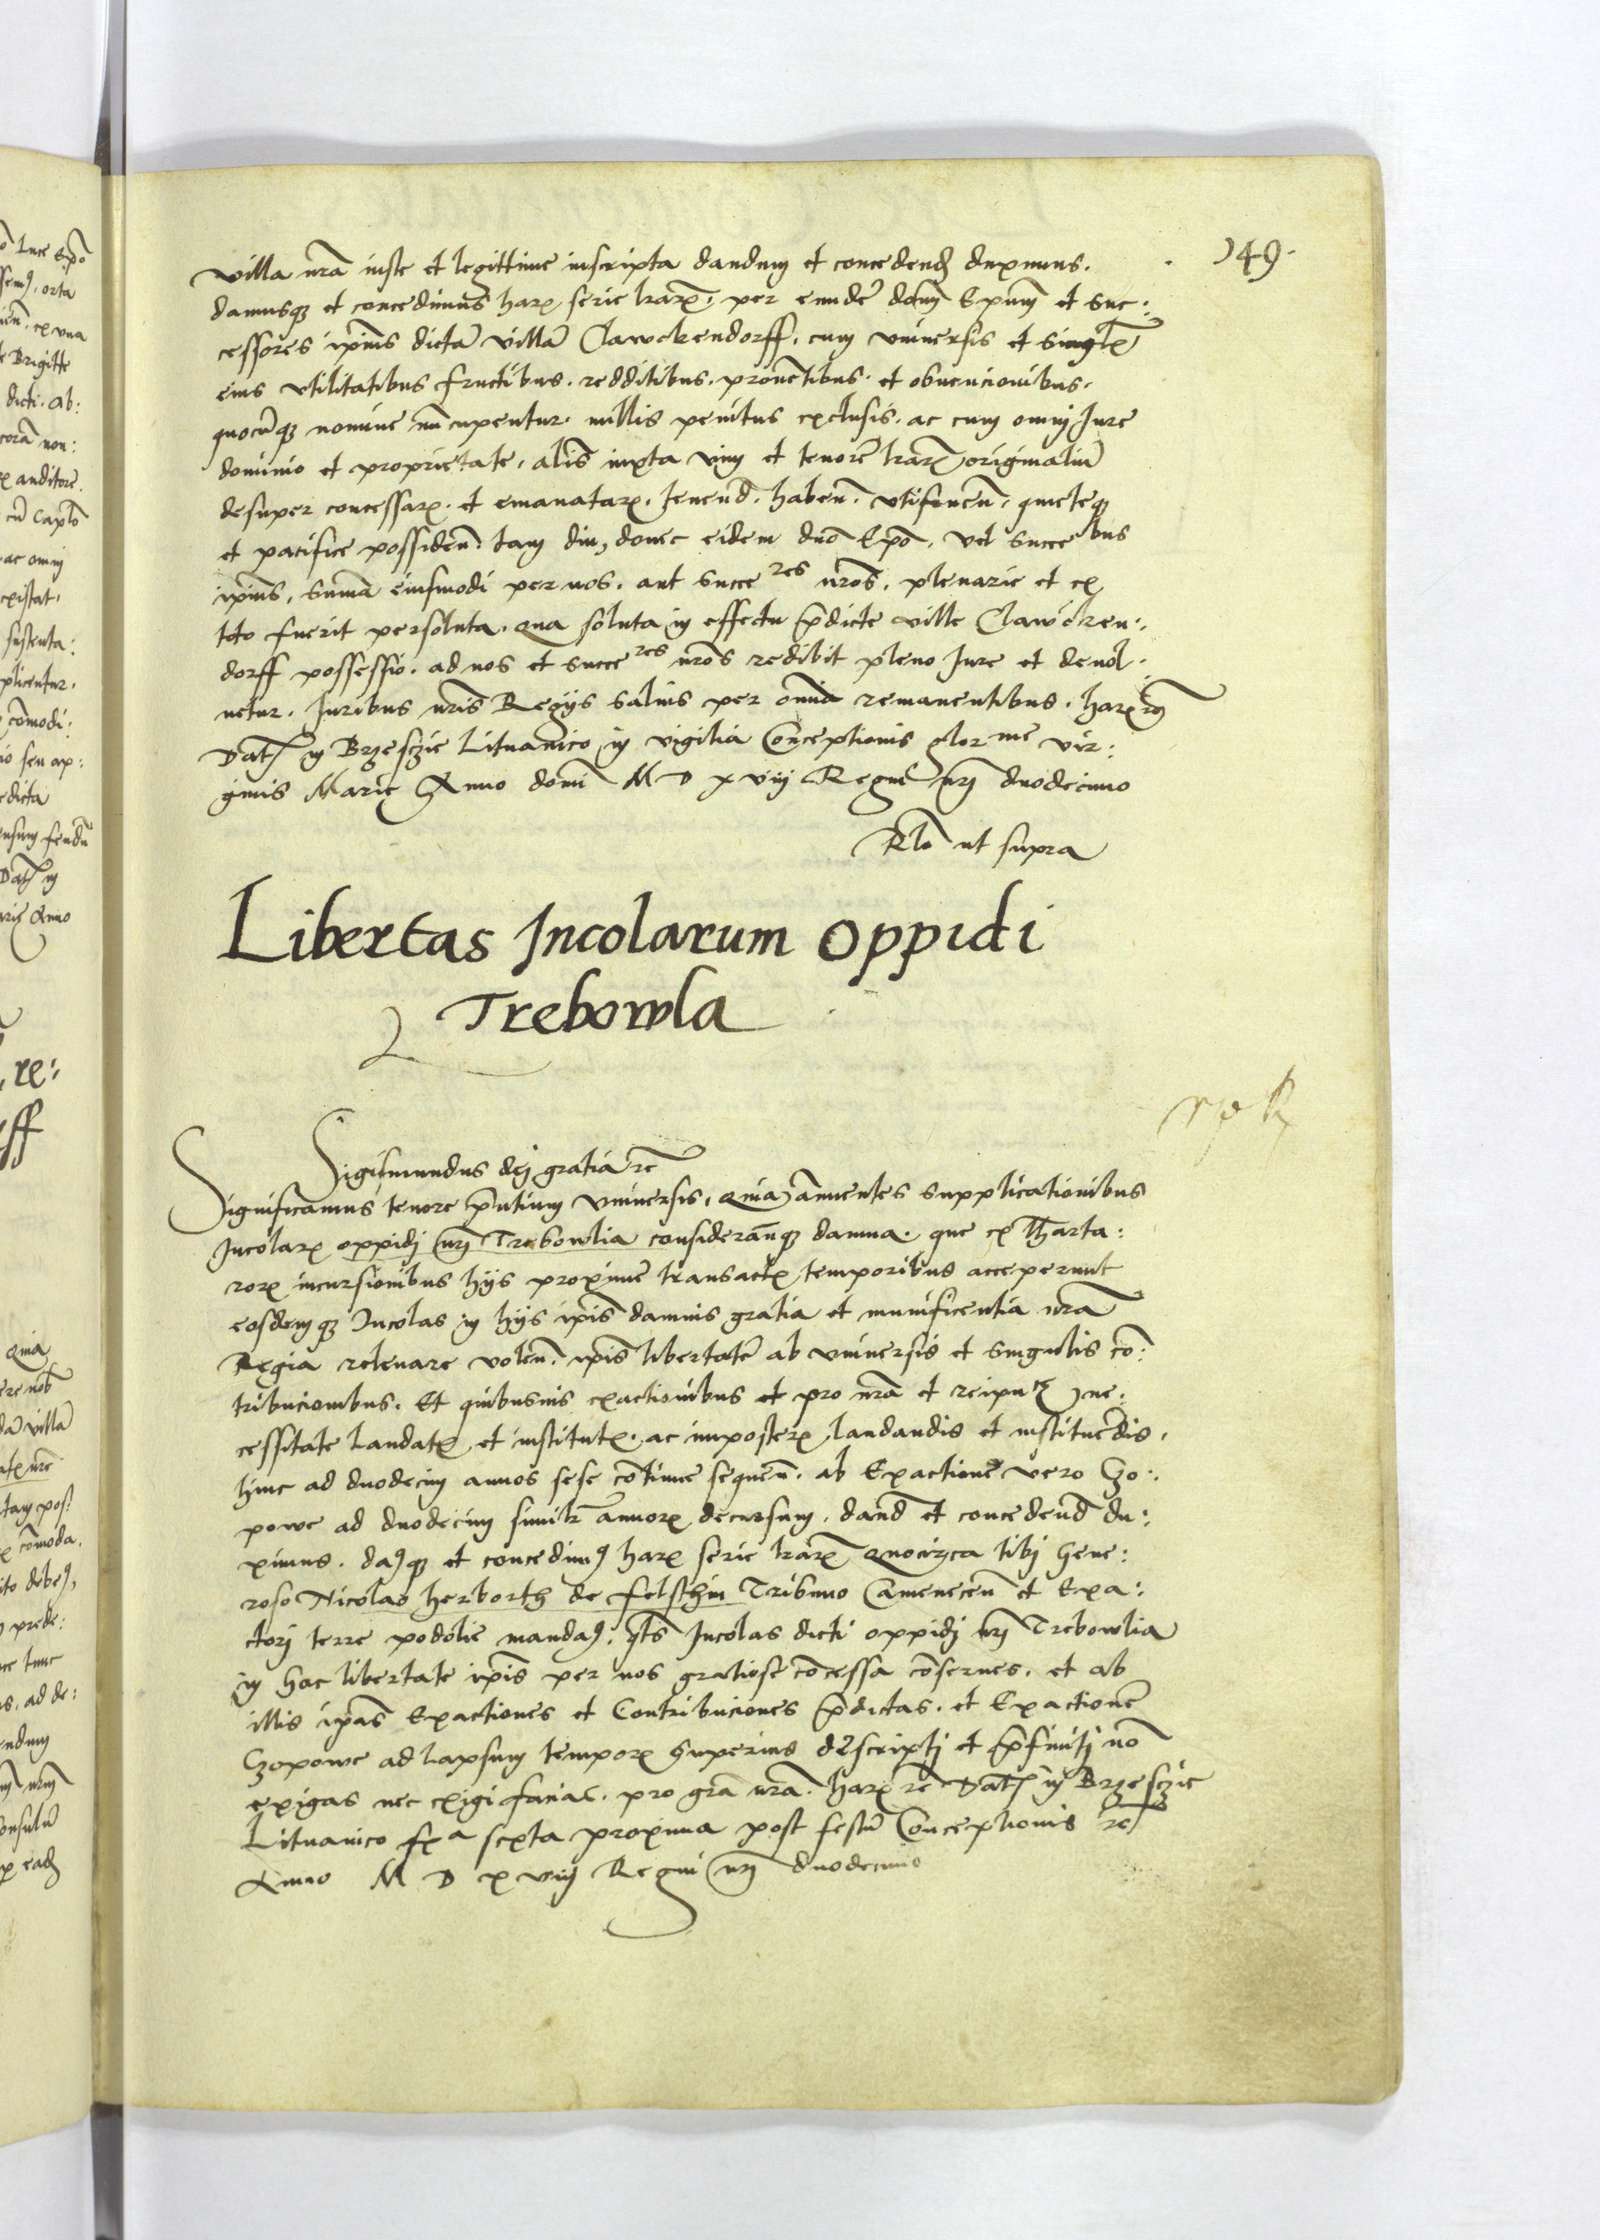 149.
villa nrã iuste et legittime inscripta dandum et concedend duximus.
damusqꝫ et concedimus harꝝ serie lrarꝝ, per eundẽ dom̃ Ep̃um et suc:
cessores ip̃ius dictã villã Clawckendorff, cum vniuersis et singulꝭ
eius vtilitatibus fructibus. redditibus. prouẽtibus. et obuencionibus.
quocũqꝫ nomine nũcupentur. nullis penitus exclusis. ac cum omni Jure
dominio et proprietate, aliàs iuxta vim et tenorẽ lrarꝝ originaliũ
desuper concessarꝝ. et emanatarꝝ. tenend̃. haben̄. vtifruen̄. quieteqꝫ
et pacifice possiden̄. tam diu, donec eidem dno Ep̃o, vel succebus
ip̃ius, sum̃a eiusmodi per nos. aut succeres nros̃. plenarie et ex
toto fuerit persoluta. qua soluta in effectu p̃dicte ville Clawcken:
dorff possessio. ad nos et succeres nros̃ redibit pleno Jure et deuol:
uetur. Juribus nris̃ Regijs saluis per omnia remanentibus. harꝝ rꝫ
Datꝭ in Brzesczie Lituanico in vigilia Conceptionis glorme vir:
ginis Marie Anno domi M D xviij Regni nrj duodecimo
Rlõ ut supra
Libertas Incolarum Oppidi
Trebowla
Sigismundus dei gratia rc̃
Significamus tenore p̃ntium vniuersis, Quia annuentes supplicationibus
Incolarꝝ oppidj nrj Trebowlia considerañqꝫ damna. que ex Tharta:
rorꝝ incursionibus hijs proxime transactꝭ temporibus acceperunt
eosdemqꝫ Incolas in hijs ip̃is damnis gratia et munificentia nrã
Regia releuare volen̄. ip̃is libertatẽ ab vniuersis et singulis cõ:
tribucionibus. Et quibusuis exactionibus et pro nrã et reipuce ne:
cessitate laudatꝭ et institutꝭ. ac imposterꝝ laudandis et instituẽdis.
hinc ad duodecim annos sese cõtinue sequen̄. ab Exactione vero Czo:
powe ad duodecim similr̃ annorꝝ decursum. dand̃ et concedend̃ du:
ximus. daꝰqꝫ et concedimꝰ harꝝ serie lrarꝝ Quocirca tibj Gene:
roso Nicolao herborth de felsthin Tribuno Camenecen̄ et Exa:
ctorj terre podolie mandaꝰ. qts̃ Incolas dicti oppidj nrj Trebowlia
in hac libertate ip̃is per nos gratiose cõcessa cõserues. et ab
illis ip̃as Exactiones et Contribuciones p̃dictas. et Exactionẽ
Czopowe ad lapsum temporꝭ superius descriptj et p̃finitj nõ
exigas nec exigi facias. pro grã nrã. harꝝ rc̃ Datꝭ in Brzesczie
Lituanico fxa sexta proxima post festũ Conceptionis rc̃
Anno M D xviij Regni nrj duodecimo